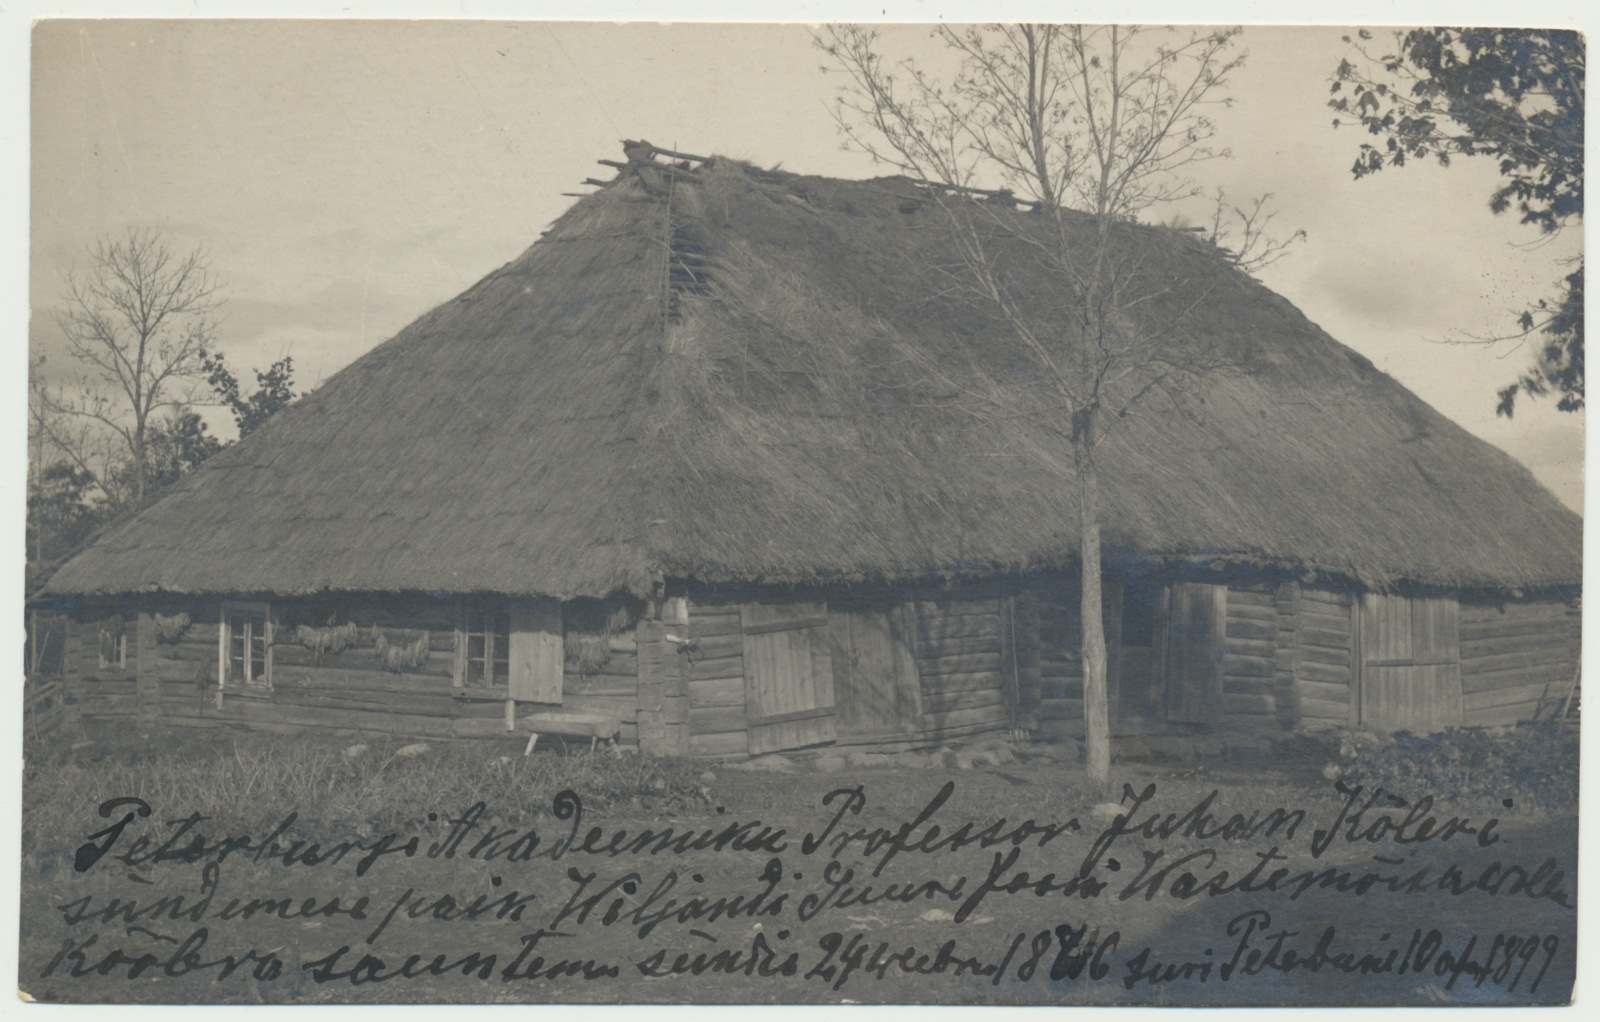 Peterburgi Akadeemiku Professor Juhan Köleri
sündimese paik Wiljandi Suure Jaani Wastemõisa
Kööbra sauntem sündis 24 weebru 1826 suri Peterburis 10 apr 1899